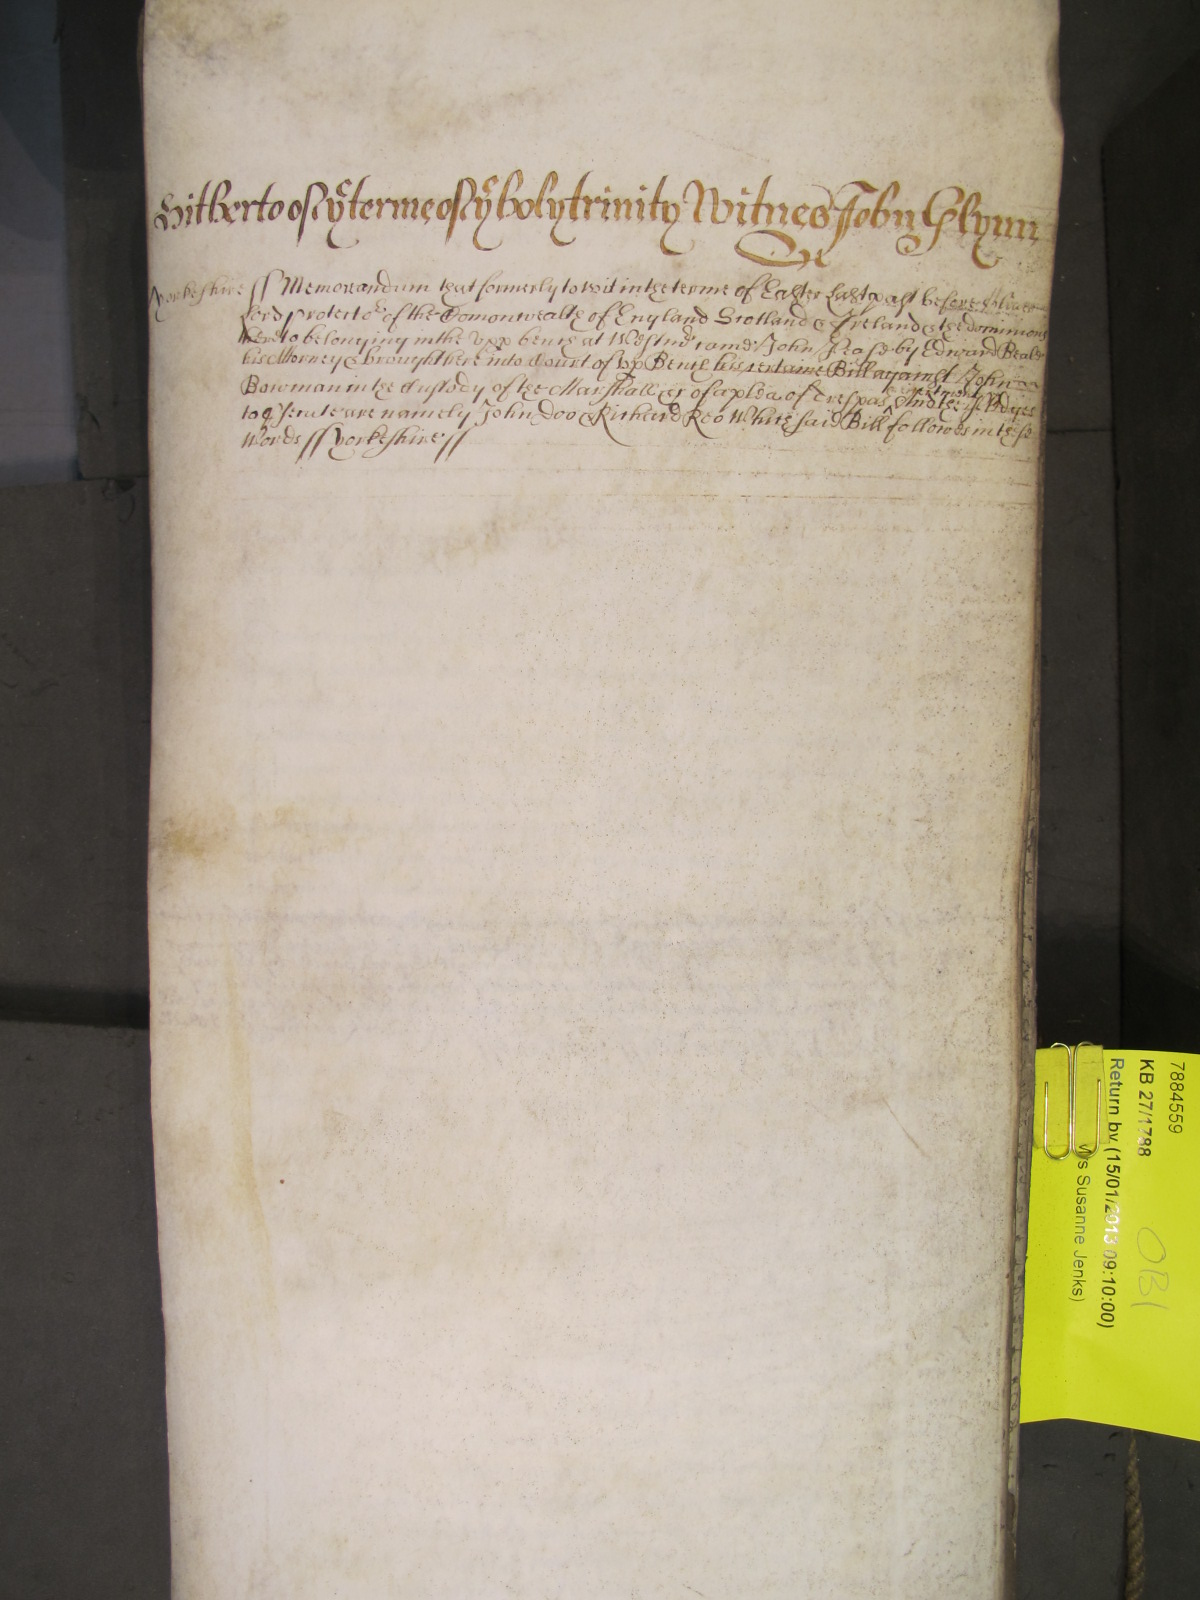 Hitherto of yͤ terme of yͤ holy trinity Witnes John Glynn
&c
Yorkeshire ss Memorandum that formerly to wit in the terme of Easter last past before Oliver
lord protector of the Comonwealth of England Scotland & Ireland & the dominions
thereto belonging in the upp bench at Westmr came John Pease by Edward
his Attorney & brought here into Court of upp Bench his certaine Bill against John
Bowman in the Custody of the Marshall &c of a plea of trespas And there are pledges
to prosecute are namely John Doo & Richard Roo Which said Bill followes in these
words ss Yorkeshire ss
7884559
KB 27/1788
Return by (15/01/2013 09:10:00)
s Susanne Jenks)
OBI